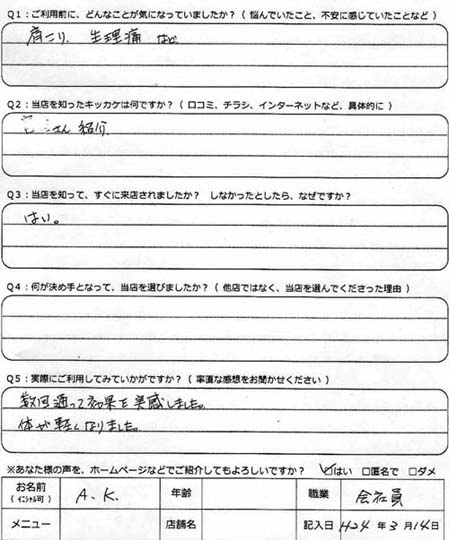 Q1：ご利用前に、どんなことが気になっていましたか？（ 悩んでいたこと、不安に感じていたことなど ）
肩こり、生理痛 など
Q2：当店を知ったキッカケは何ですか？（ 口コミ、チラシ、インターネットなど、具体的に ）
さん 紹介
Q3：当店を知って、すぐに来店されましたか？ しなかったとしたら、なぜですか？
はい。
Q4：何が決め手となって、当店を選びましたか？（ 他店ではなく、当店を選んでくださった理由 ）
Q5：実際にご利用してみていかがですか？（ 率直な感想をお聞かせください ）
数回通って効果を実感しました。
体が軽くなりました。
※あなた様の声を、ホームページなどでご紹介してもよろしいですか？ ☑はい □匿名で □ダメ
お名前 A.K. 年齢 職業 会社員
（ｲﾆｼｬﾙ可）
メニュー 店舗名 記入日 H24 年 3 月 14 日